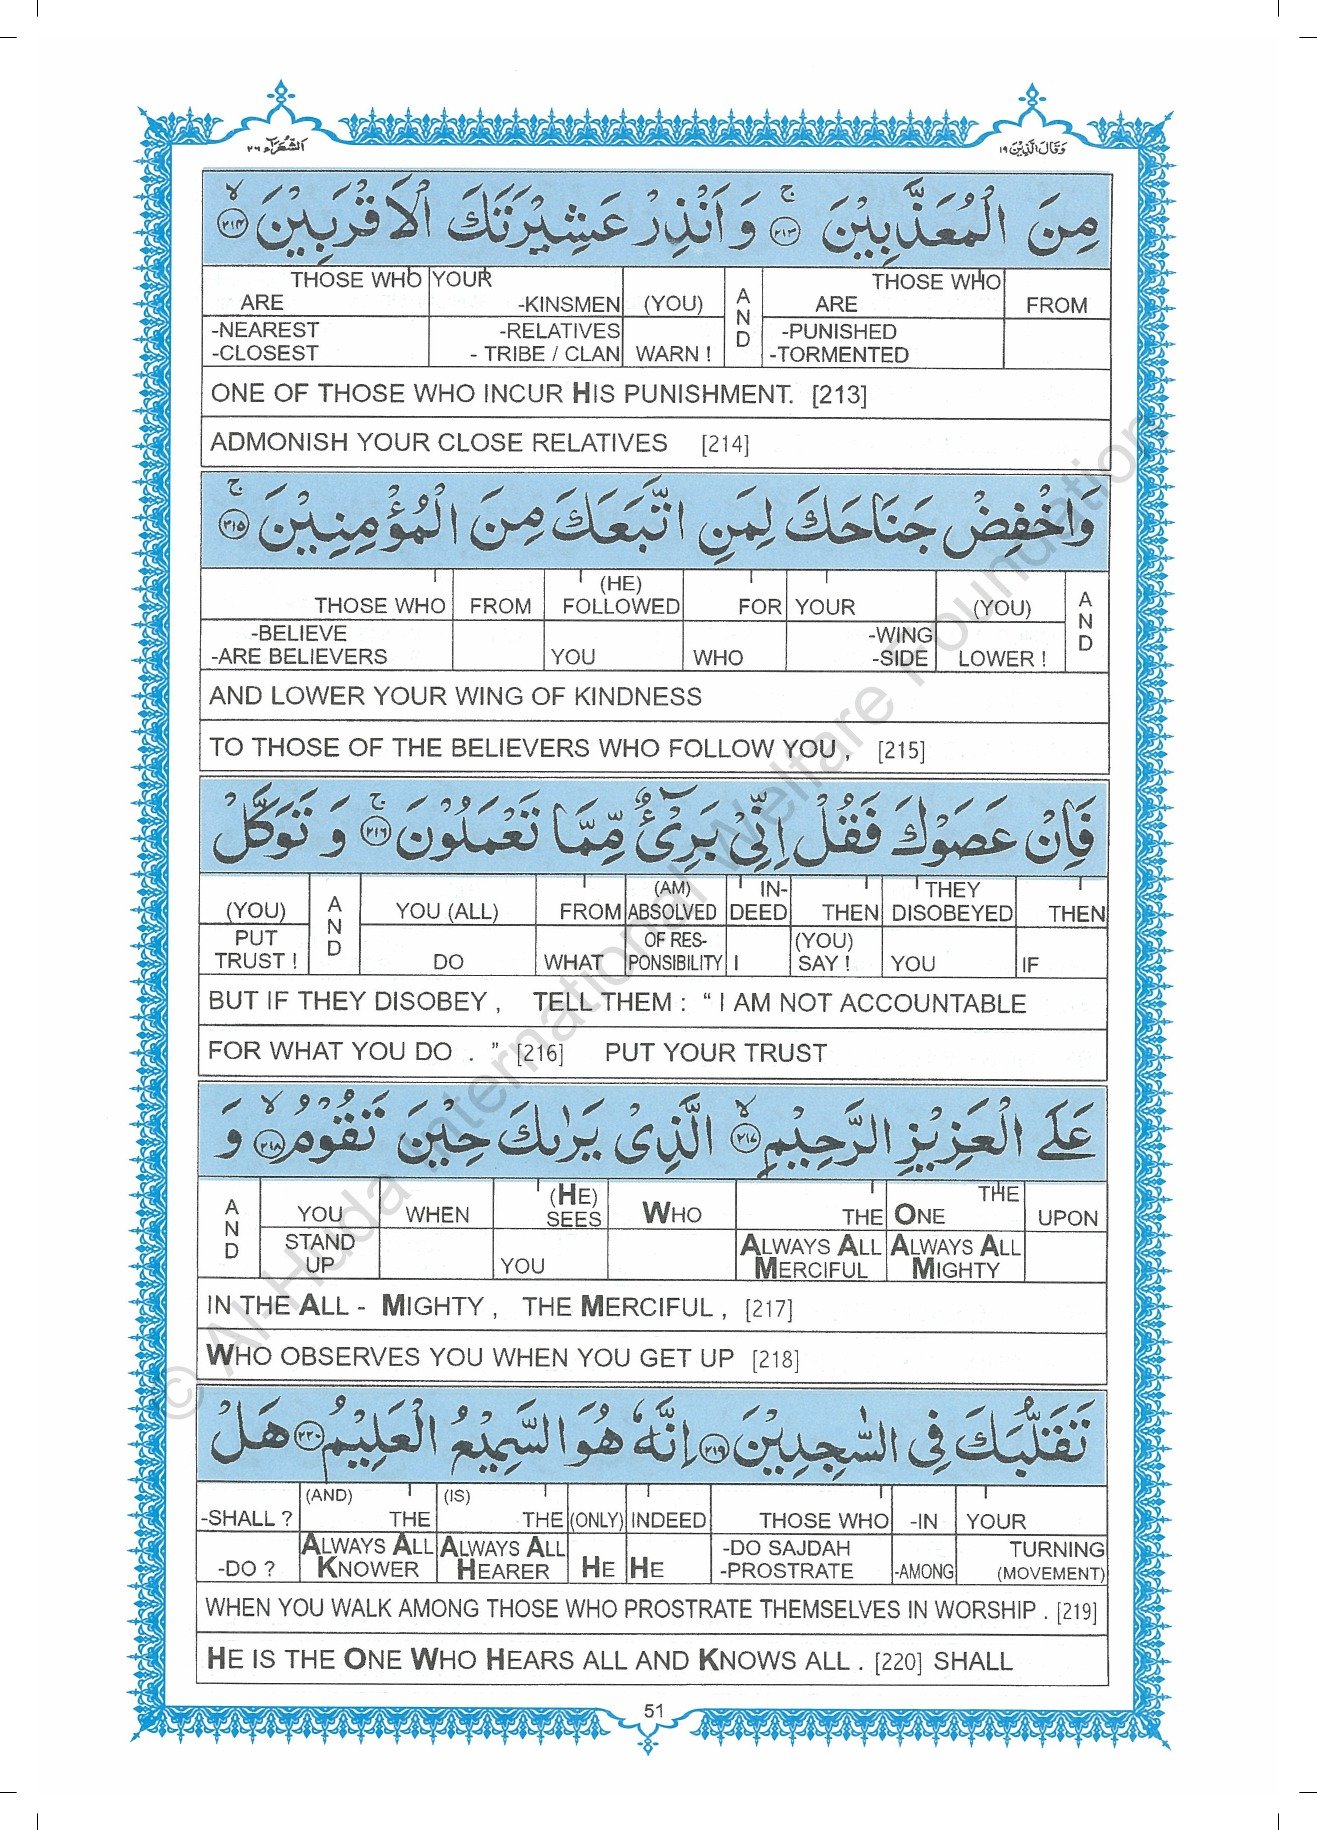 وَقَالَ الَّذِيْنَ ١٩
الشُّعَرَآء ٢٦
مِنَ الْمُعَذَّبِيْنَ ۚ ﴿٢١٣﴾ وَ اَنْذِرْ عَشِيْرَتَكَ الْاَقْرَبِيْنَ ۙ ﴿٢١٤﴾
THOSE WHO ARE -NEAREST -CLOSEST | YOUR -KINSMEN -RELATIVES - TRIBE / CLAN | (YOU) WARN ! | AND | THOSE WHO ARE -PUNISHED -TORMENTED | FROM
ONE OF THOSE WHO INCUR HIS PUNISHMENT. [213]
ADMONISH YOUR CLOSE RELATIVES [214]
وَاخْفِضْ جَنَاحَكَ لِمَنِ اتَّبَعَكَ مِنَ الْمُؤْمِنِيْنَ ۚ ﴿٢١٥﴾
THOSE WHO -BELIEVE -ARE BELIEVERS | FROM | (HE) FOLLOWED YOU | FOR WHO | YOUR -WING -SIDE | (YOU) LOWER ! | AND
AND LOWER YOUR WING OF KINDNESS
TO THOSE OF THE BELIEVERS WHO FOLLOW YOU , [215]
فَاِنْ عَصَوْكَ فَقُلْ اِنِّيْ بَرِيْٓءٌ مِّمَّا تَعْمَلُوْنَ ۚ ﴿٢١٦﴾ وَ تَوَكَّلْ
(YOU) PUT TRUST ! | AND | YOU (ALL) DO | FROM WHAT | (AM) ABSOLVED OF RES- PONSIBILITY | IN- DEED I | THEN (YOU) SAY ! | THEY DISOBEYED YOU | THEN IF
BUT IF THEY DISOBEY , TELL THEM : “ I AM NOT ACCOUNTABLE
FOR WHAT YOU DO . ” [216] PUT YOUR TRUST
عَلَى الْعَزِيْزِ الرَّحِيْمِ ۙ ﴿٢١٧﴾ الَّذِيْ يَرٰىكَ حِيْنَ تَقُوْمُ ۙ ﴿٢١٨﴾ وَ
AND | YOU STAND UP | WHEN | (HE) SEES YOU | WHO | THE ALWAYS ALL MERCIFUL | THE ONE ALWAYS ALL MIGHTY | UPON
IN THE ALL - MIGHTY , THE MERCIFUL , [217]
WHO OBSERVES YOU WHEN YOU GET UP [218]
تَقَلُّبَكَ فِي السّٰجِدِيْنَ ﴿٢١٩﴾ اِنَّهٗ هُوَ السَّمِيْعُ الْعَلِيْمُ ﴿٢٢٠﴾ هَلْ
-SHALL ? -DO ? | (AND) THE ALWAYS ALL KNOWER | (IS) THE ALWAYS ALL HEARER | (ONLY) HE | INDEED HE | THOSE WHO -DO SAJDAH -PROSTRATE | -IN -AMONG | YOUR TURNING (MOVEMENT)
WHEN YOU WALK AMONG THOSE WHO PROSTRATE THEMSELVES IN WORSHIP . [219]
HE IS THE ONE WHO HEARS ALL AND KNOWS ALL . [220] SHALL
51
© Al-Huda International Welfare Foundation